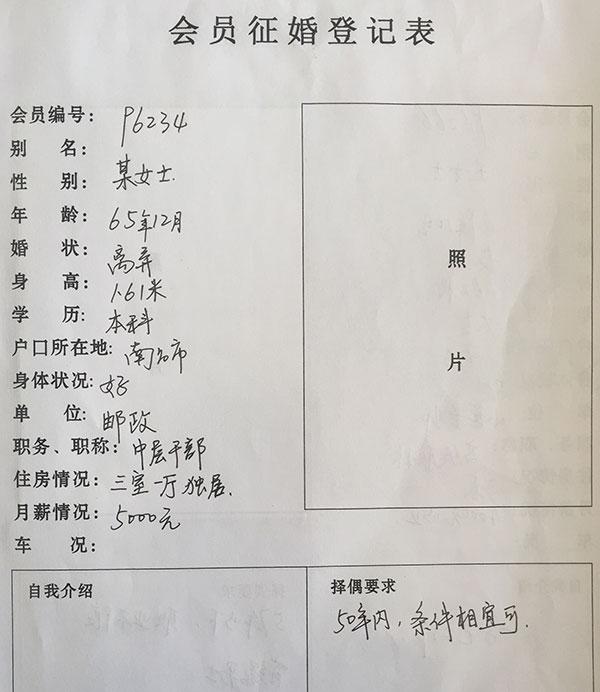 会员征婚登记表
会员编号: P6234
别 名:
性 别: 某女士.
年 龄: 65年12月
婚 状: 离异
身 高: 1.61米
学 历: 本科
户口所在地: 南 市
身体状况: 好
单 位: 邮政
职务、职称: 中层干部
住房情况: 三室一厅独居.
月薪情况: 5000元
车 况:
照
片
自我介绍
择偶要求
50年内,条件相宜可.